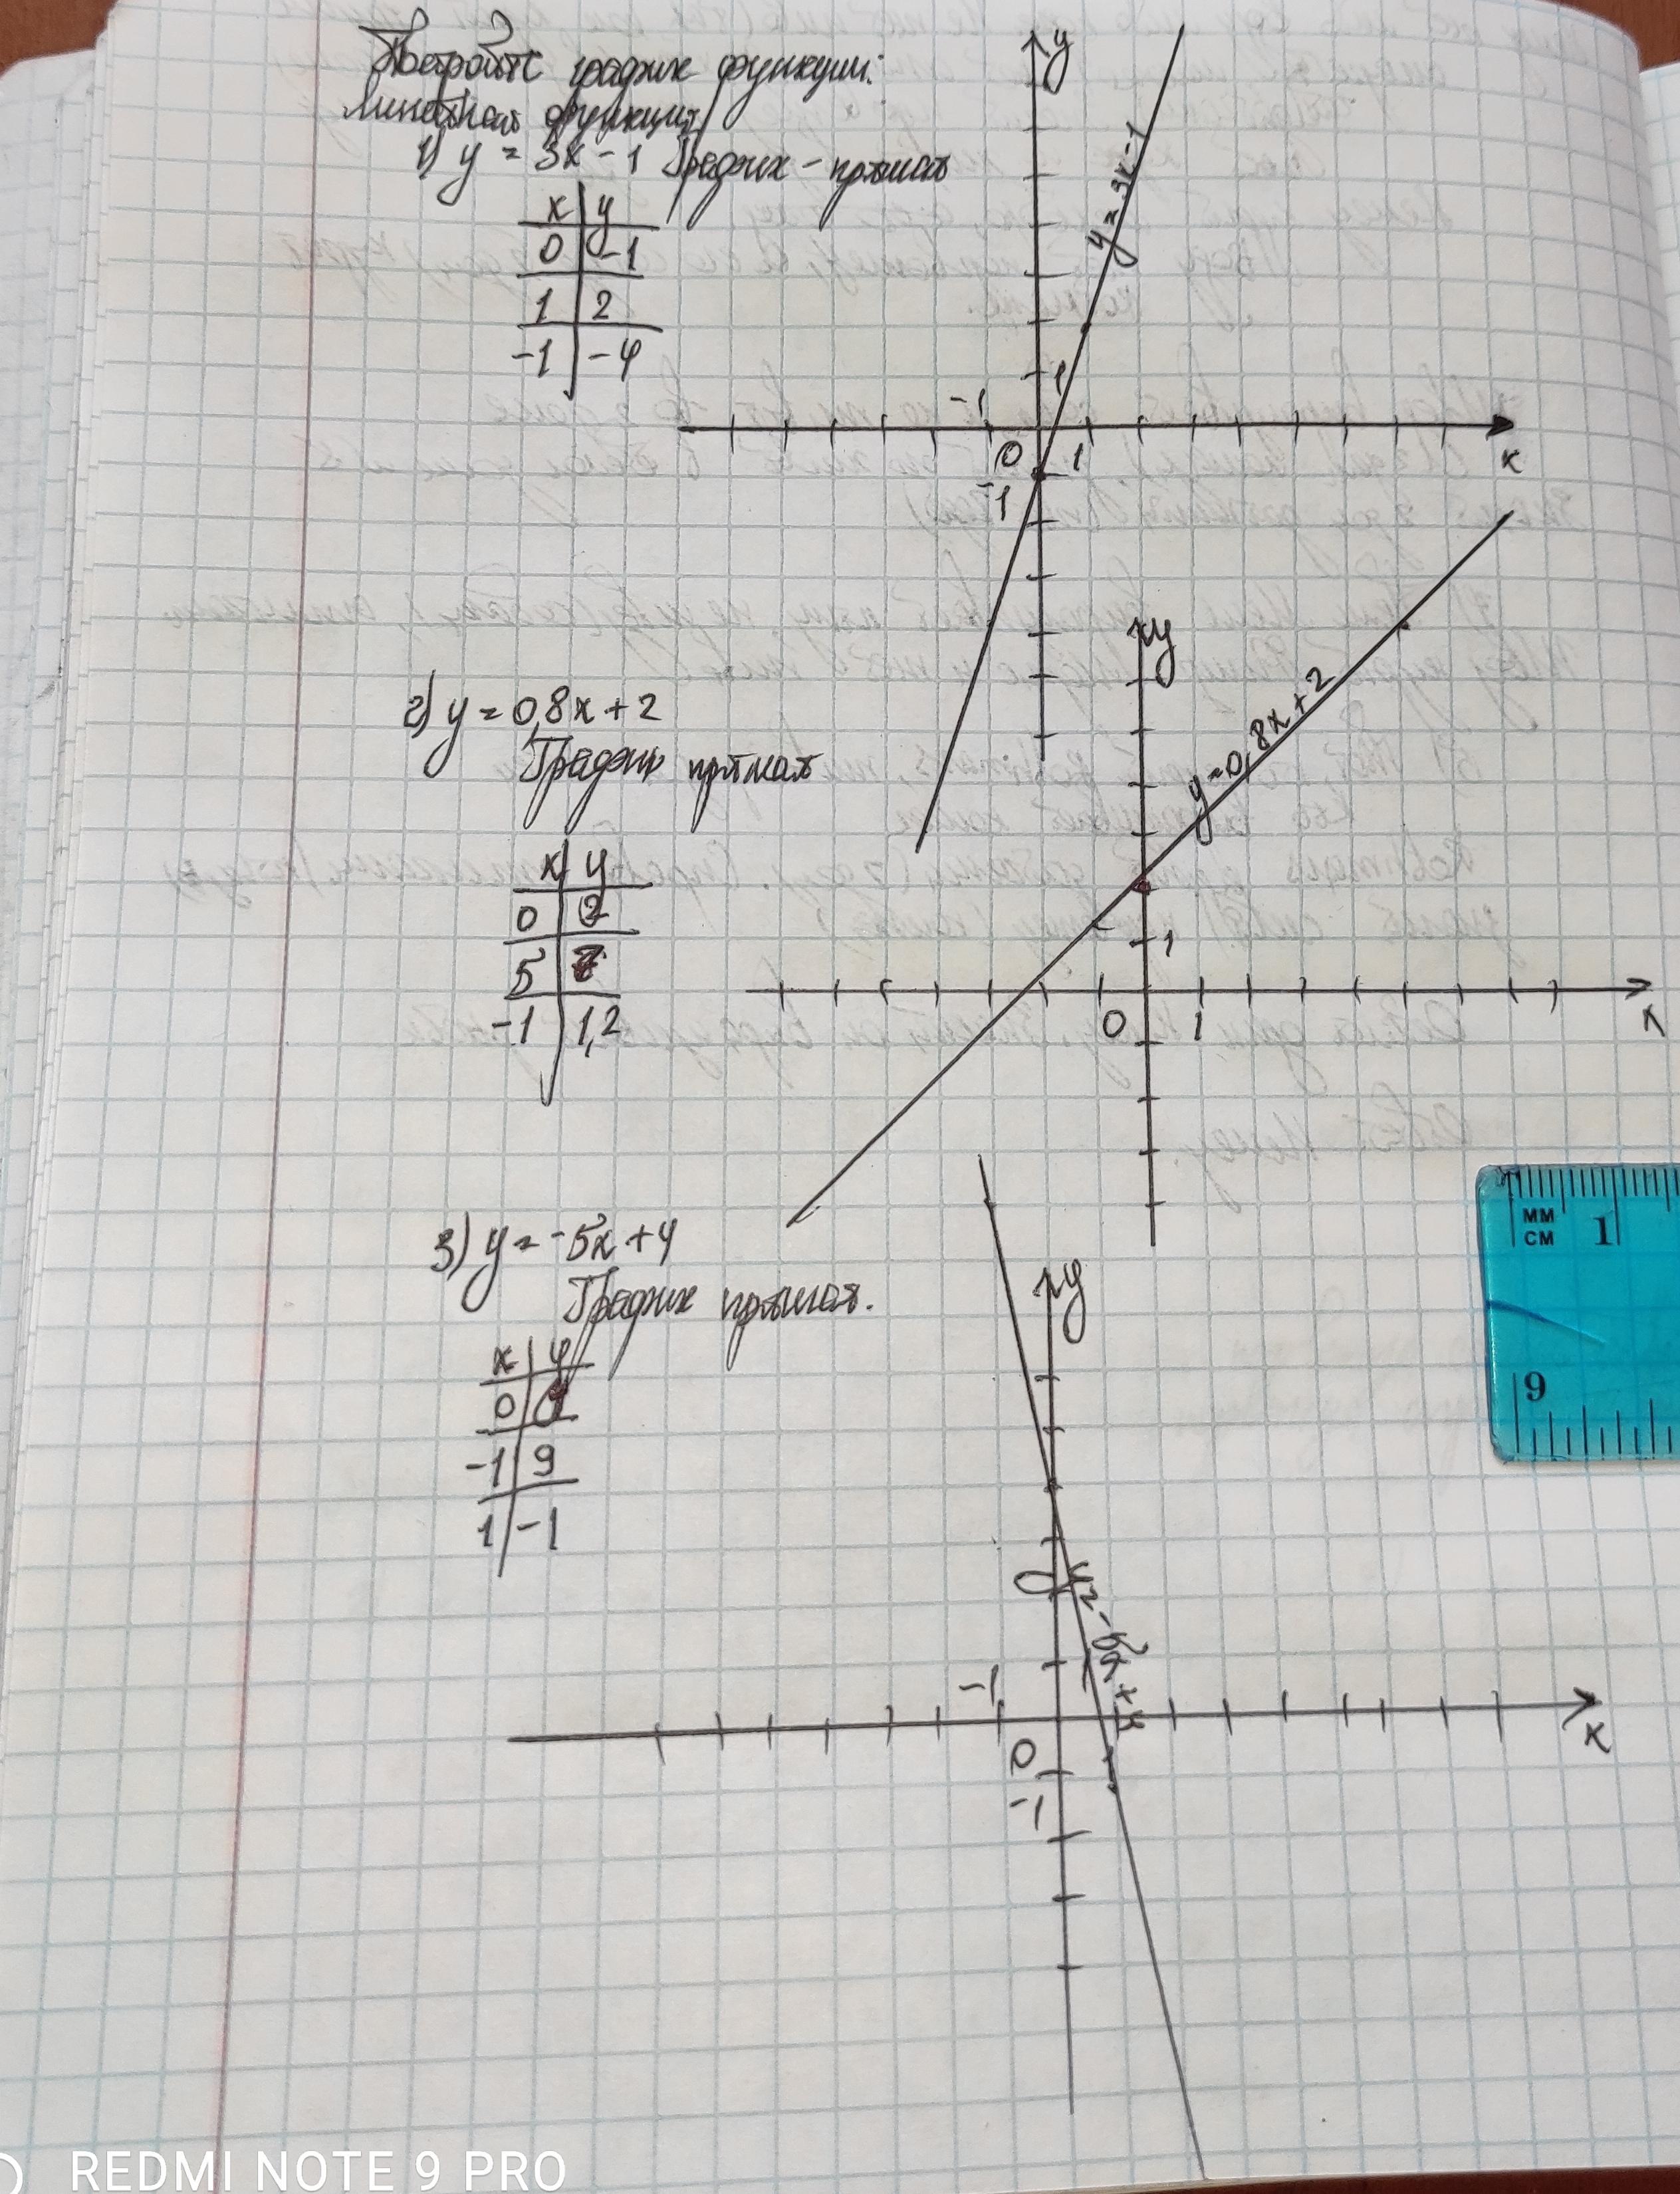 Постройте график функции:
Линейная функция
1) y = 3x - 1 График - прямая
x | y
0 | -1
1 | 2
-1 | -4
y
y = 3x - 1
1
-1
0 1
x
-1
2) y = 0,8x + 2
График прямая
x | y
0 | 2
5 |
-1 | 1,2
y
y = 0,8x + 2
1
0 1
x
3) y = -5x + 4
График прямая.
x | y
0 |
-1 | 9
1 | -1
y
y = -5x + 4
-1
0
x
-1
MM
CM 1
9
REDMI NOTE 9 PRO